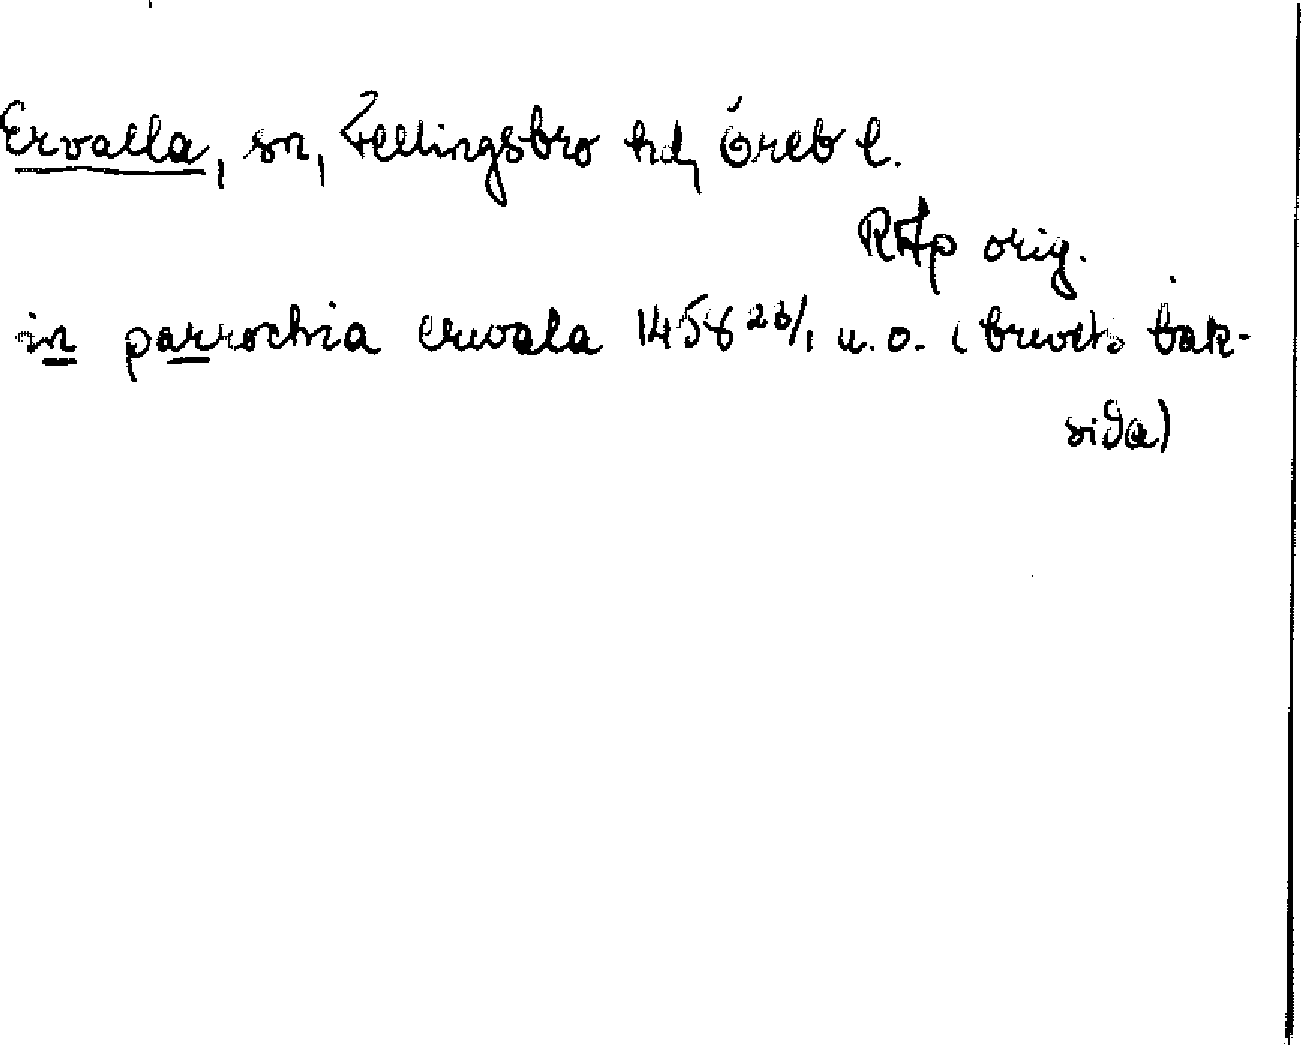 Ervalla, sn, Fellingsbro hd, Öreb l.
RAp orig.
in parrochia ervala 1458 23/1 u.o. (brevets bak-
sida)